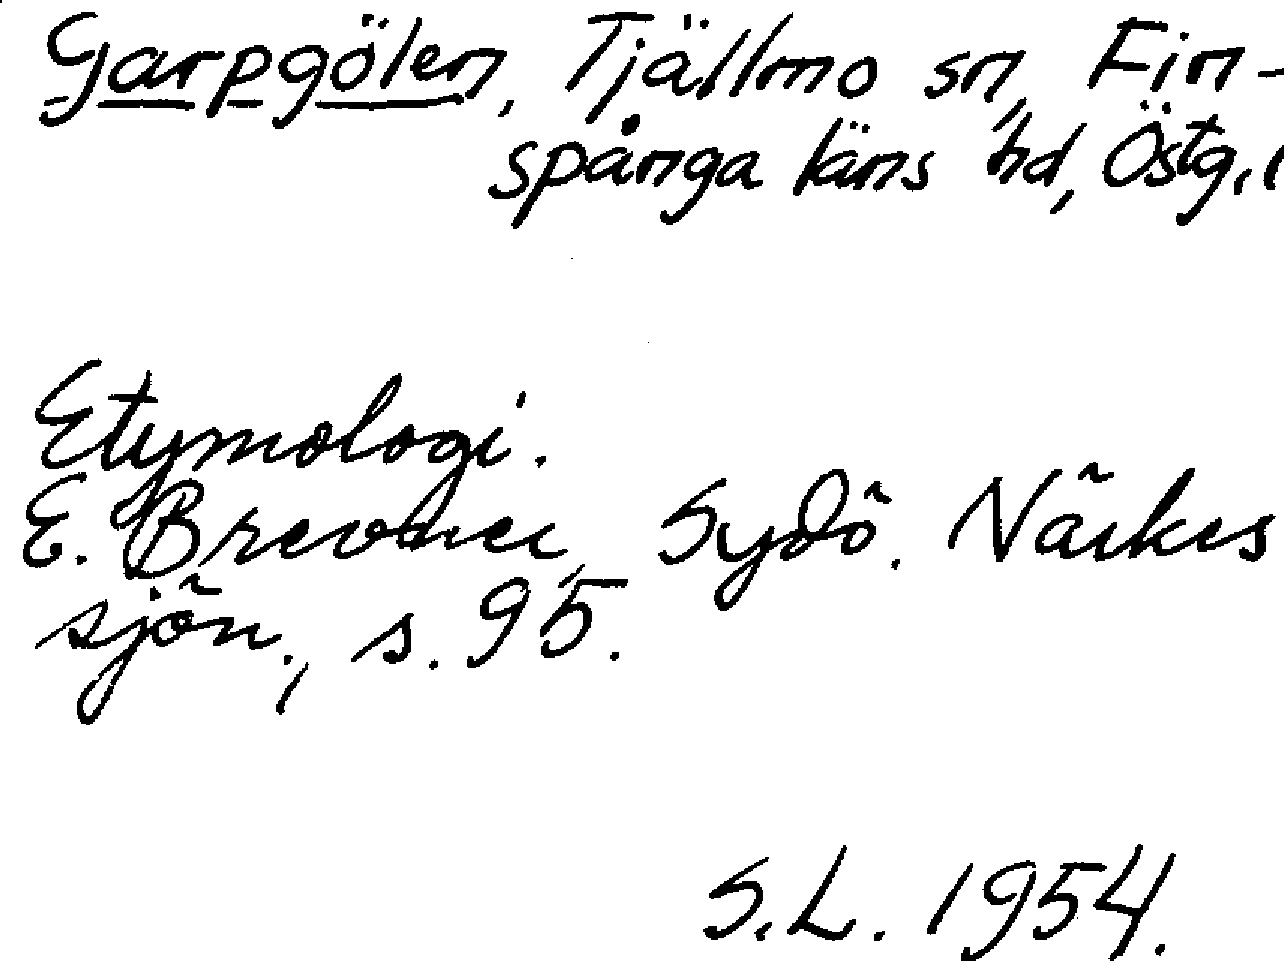 Garpgölen, Tjällmo sn, Fin-
spånga läns hd, Östg.l
Etymologi.
E. Brevner, Sydö. Närkes
sjön., s. 95.
S.L. 1954.